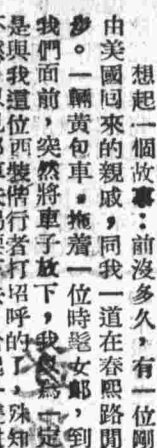 想起一個故事：前沒多久，有一位剛
由美國囘來的親戚，同我一道在春熙路閒
步。一輛黃包車，拖着一位時髦女郞，到
我們面前，突然將車子放下，我以為一定
是與我這位西裝偕行者打招呼的了，殊知